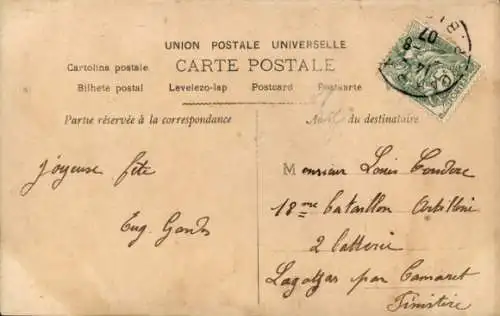 UNION POSTALE UNIVERSELLE
CARTE POSTALE
Cartolina postale
Bilhete postal Levelezo-lap Postcard Postkarte
Partie réservée à la correspondance
du destinataire
Joyeuse fête
Eug.
Monsieur Louis
18me bataillon Artillerie
2 batterie
Lagatjar par Camaret
Finistère
07
8